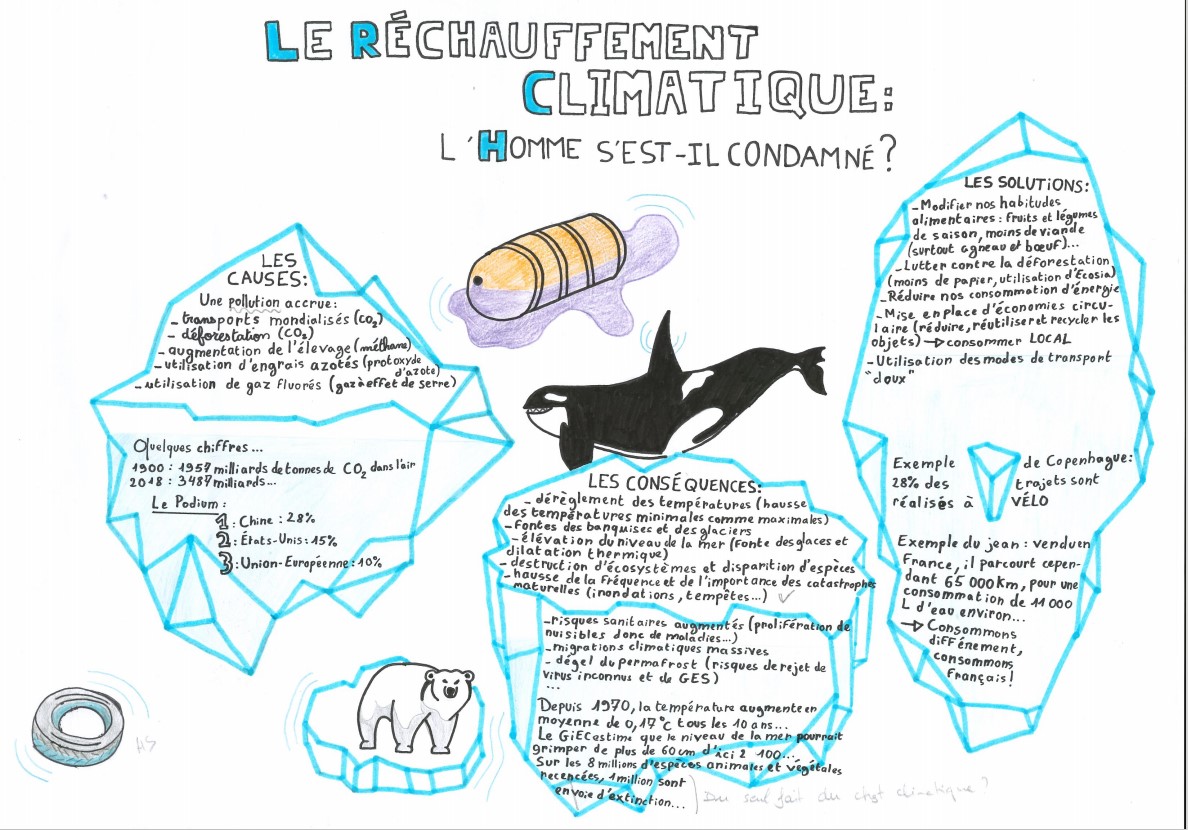 LE RÉCHAUFFEMENT
CLIMATIQUE:
L'HOMME S'EST-IL CONDAMNÉ?
LES
CAUSES:
Une pollution accrue:
- transports mondialisés (CO₂)
- déforestation (CO₂)
- augmentation de l'élevage (méthane)
- utilisation d'engrais azotés (protoxyde
d'azote)
- utilisation de gaz fluorés (gaz à effet de serre)
Quelques chiffres...
1900 : 1957 milliards de tonnes de CO₂ dans l'air
2018 : 3487 milliards...
Le Podium :
1 : Chine : 28%
2 : États-Unis : 15%
3 : Union-Européenne : 10%
LES CONSÉQUENCES:
- dérèglement des températures (hausse
des températures minimales comme maximales)
- fontes des banquises et des glaciers
- élévation du niveau de la mer (fonte des glaces et
dilatation thermique)
- destruction d'écosystèmes et disparition d'espèces
- hausse de la fréquence et de l'importance des catastrophes
naturelles (inondations, tempêtes...)
- risques sanitaires augmentés (prolifération de
nuisibles donc de maladies...)
- migrations climatiques massives
- dégel du permafrost (risques de rejet de
virus inconnus et de GES)
...
Depuis 1970, la température augmente en
moyenne de 0,17°c tous les 10 ans...
Le GiEC estime que le niveau de la mer pourrait
grimper de plus de 60 cm d'ici 2 100...
Sur les 8 millions d'espèces animales et végétales
recencées, 1 million sont
en voie d'extinction...
Du seul fait du chgt climatique ?
LES SOLUTIONS:
- Modifier nos habitudes
alimentaires : fruits et légumes
de saison, moins de viande
(surtout agneau et bœuf)...
- Lutter contre la déforestation
(moins de papier, utilisation d'Écosia)
- Réduire nos consommation d'énergie
- Mise en place d'économies circu-
laire (réduire, réutiliser et recycler les
objets) → consommer LOCAL
- Utilisation des modes de transport
"doux"
Exemple de Copenhague:
28% des trajets sont
réalisés à VÉLO
Exemple du jean : vendu en
France, il parcourt cepen-
dant 65 000 Km, pour une
consommation de 11 000
L d'eau environ...
→ Consommons
différement,
consommons
français!